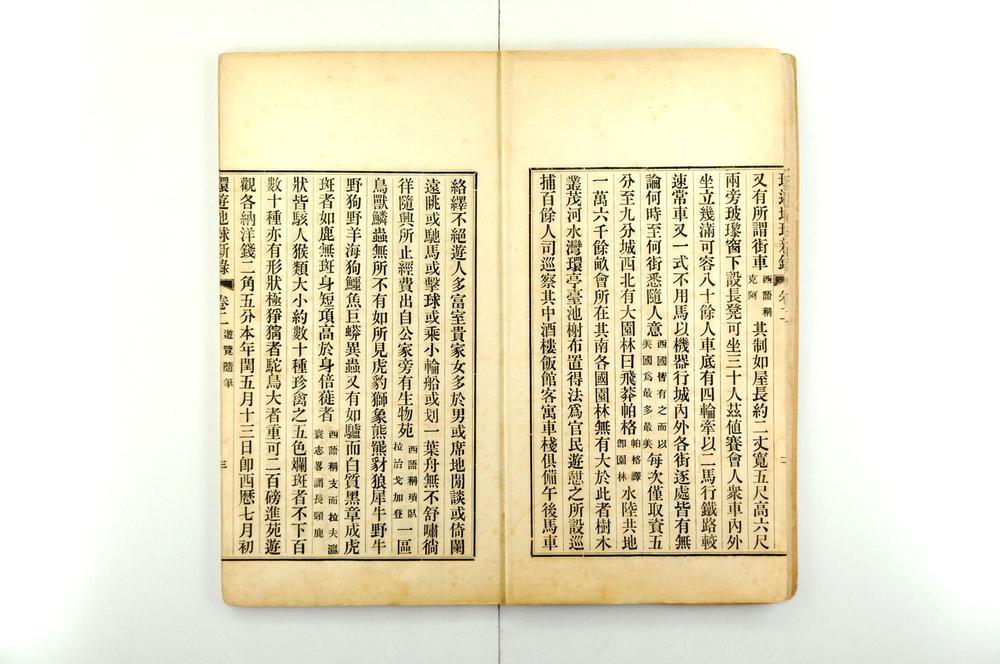 又有所謂街車西語稱克阿其制如屋長約二丈寬五尺高六尺
兩旁玻瓈窗下設長凳可坐三十人茲値賽會人衆車內外
坐立幾滿可容八十餘人車底有四輪牽以二馬行鐵路較
速常車又一式不用馬以機器行城內外各街逐處皆有無
論何時至何街悉隨人意西國皆有之而以美國爲最多最美每次僅取資五
分至九分城西北有大園林曰飛莽帕格帕格譯卽園林水陸共地
一萬六千餘畝會所在其南各國園林無有大於此者樹木
叢茂河水灣環亭臺池榭布置得法爲官民遊憩之所設巡
捕百餘人司巡察其中酒樓飯館客寓車棧俱備午後馬車
絡繹不絕遊人多富室貴家女多於男或席地閒談或倚闌
遠眺或馳馬或擊球或乘小輪船或划一葉舟無不舒嘯徜
徉隨興所止經費出自公家旁有生物苑西語稱瑣臥拉治戈加登一區
鳥獸鱗蟲無所不有如所見虎豹獅象熊羆豺狼犀牛野牛
野狗野羊海狗鱷魚巨蟒異蟲又有如驢而白質黑章成虎
斑者如鹿無斑身短項高於身倍蓰者西語稱支而拉夫瀛寰志畧謂長頸鹿
狀皆駭人猴類大小約數十種珍禽之五色斕斑者不下百
數十種亦有形狀極猙獰者駝鳥大者重可二百磅進苑遊
觀各納洋錢二角五分本年閏五月十三日卽西曆七月初
環遊地球新錄 卷二 遊覽隨筆 三